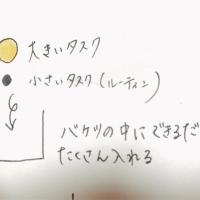 大きいタスク
小さいタスク(ルーティン)
バケツの中にできるだ
たくさん入れる